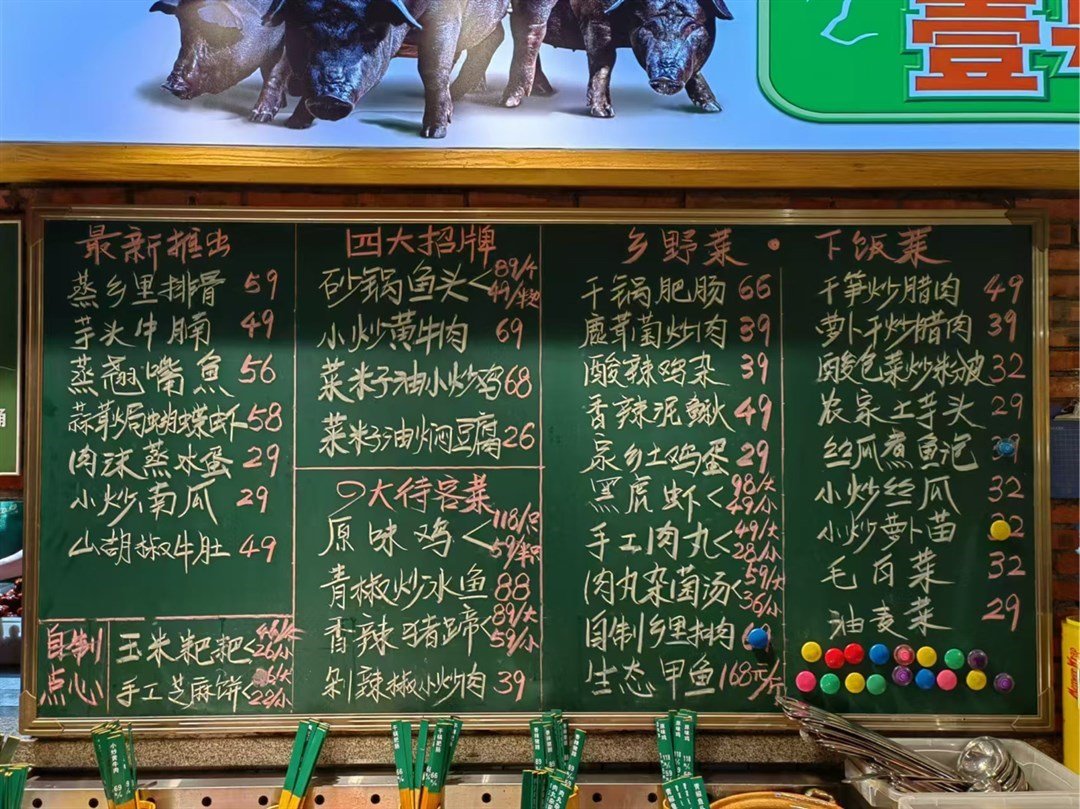 壹
最新推出
蒸乡里排骨 59
芋头牛腩 49
蒸翘嘴鱼 56
蒜茸焗蝴蝶虾 58
肉沫蒸水蛋 29
小炒南瓜 29
山胡椒牛肚 49
自制点心
玉米粑粑 /大 26/小
手工芝麻饼 /大 22/小
四大招牌
砂锅鱼头 89/个 49/半边
小炒黄牛肉 69
菜籽油小炒鸡 68
菜籽油焖豆腐 26
大待客菜
原味鸡 118/只 59/半只
青椒炒水鱼 88
香辣猪蹄 89/大 59/小
剁辣椒小炒肉 39
乡野菜·下饭菜
干锅肥肠 66
鹿茸菌炒肉 39
酸辣鸡杂 39
香辣泥鳅 49
家乡土鸡蛋 29
黑虎虾 98/大 49/小
手工肉丸 49/大 28/小
肉丸杂菌汤 59/大 36/小
自制乡里腊肉
生态甲鱼 168元/斤
干笋炒腊肉 49
萝卜干炒腊肉 39
酸包菜炒米粉皮 32
农家土芋头 29
丝瓜煮鱼泡
小炒丝瓜 32
小炒萝卜苗
毛白菜 32
油麦菜 29